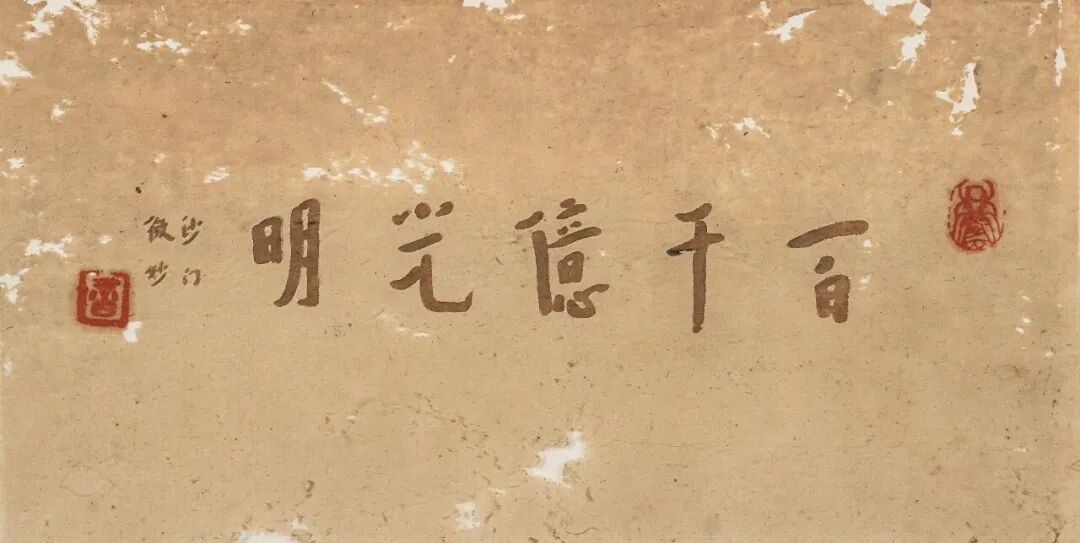 百千億光明
沙门
微妙